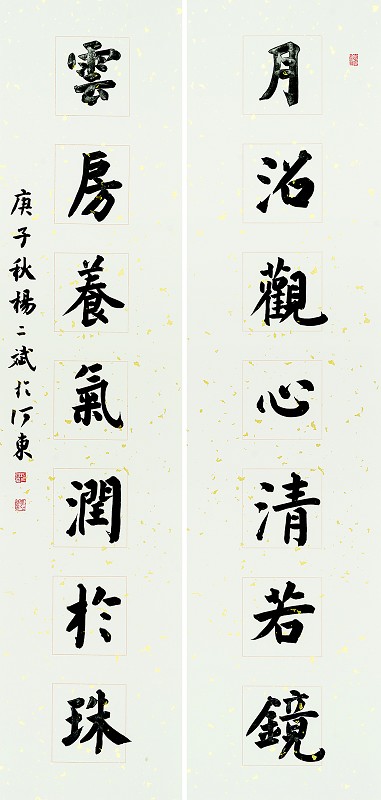 月沼觀心清若鏡
雲房養氣潤於珠
庚子秋楊二斌於河東